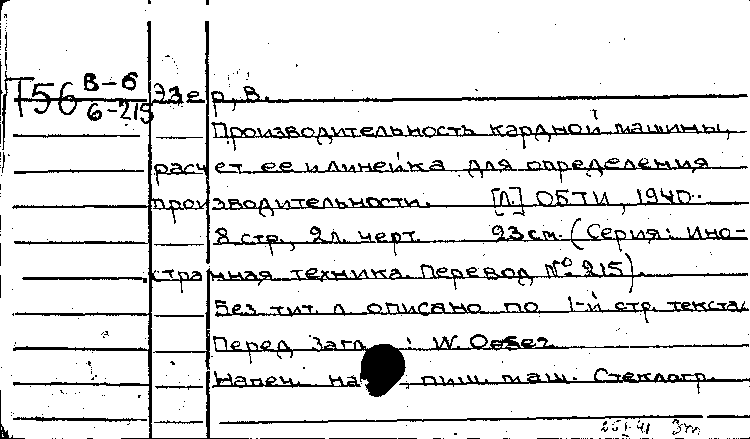 Т56 В-6 Эзер, В.
6-215
Производительность кардной машины,
расчет ее и линейка для определения
производительности. [Л.] ОБТИ, 1940.
8 стр., 2 л. черт. 23 см. (Серия: Ино-
странная техника. Перевод № 215).
Без тит. л описано по 1-й стр. текста.
Перед загл : W. Oeser
Напеч. на пиш. маш. Стеклогр.